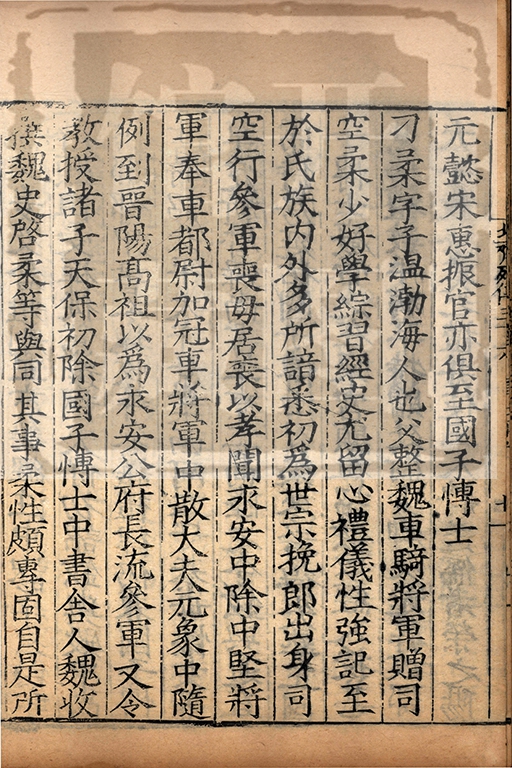 元懿宋惠振官亦俱至國子愽士
刁柔字子溫渤海人也父整魏車騎將軍贈司
空柔少好學綜習經史尤留心禮儀性強記至
於氏族内外多所諳悉初為世宗挽郎出身司
空行參軍喪母居喪以孝聞永安中除中堅將
軍奉車都尉加冠軍將軍中散大夫元象中隨
例到晉陽髙祖以為永安公府長流參軍又令
教授諸子天保初除國子愽士中書舎人魏收
撰魏史啓柔等與同其事柔性頗專固自是所